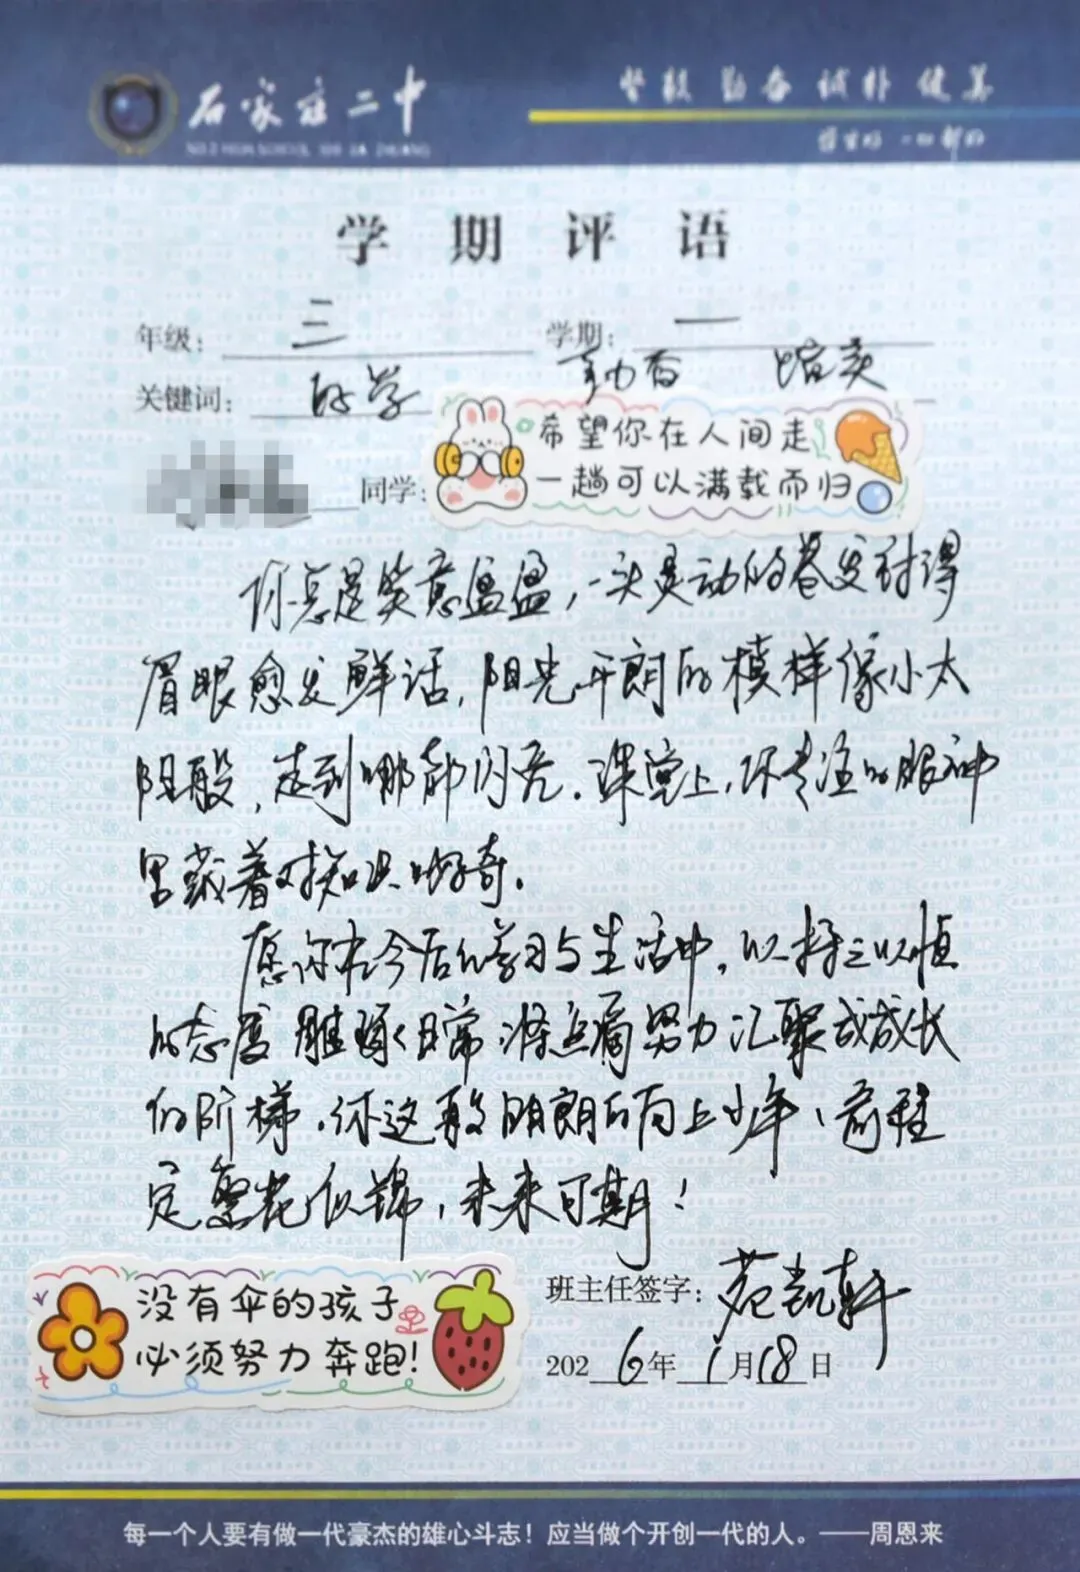 石家庄二中
坚毅 勤奋 诚朴 健美
学期评语
年级：三 学期：一
关键词：好学 勤奋 踏实
同学：
希望你在人间走
一趟可以满载而归
你总是笑意盈盈，一头灵动的卷发衬得
眉眼愈发鲜活，阳光开朗的模样像小太
阳般，走到哪都闪亮。课堂上，你专注的眼神
里载着对知识的好奇。
愿你在今后的学习与生活中，以持之以恒
的态度雕琢日常，将点滴努力汇聚成成长
的阶梯。你这般明朗的向上少年，前程
定繁花似锦，未来可期！
没有伞的孩子
必须努力奔跑！
班主任签字：范凯轩
2026年1月18日
每一个人要有做一代豪杰的雄心斗志！应当做个开创一代的人。——周恩来